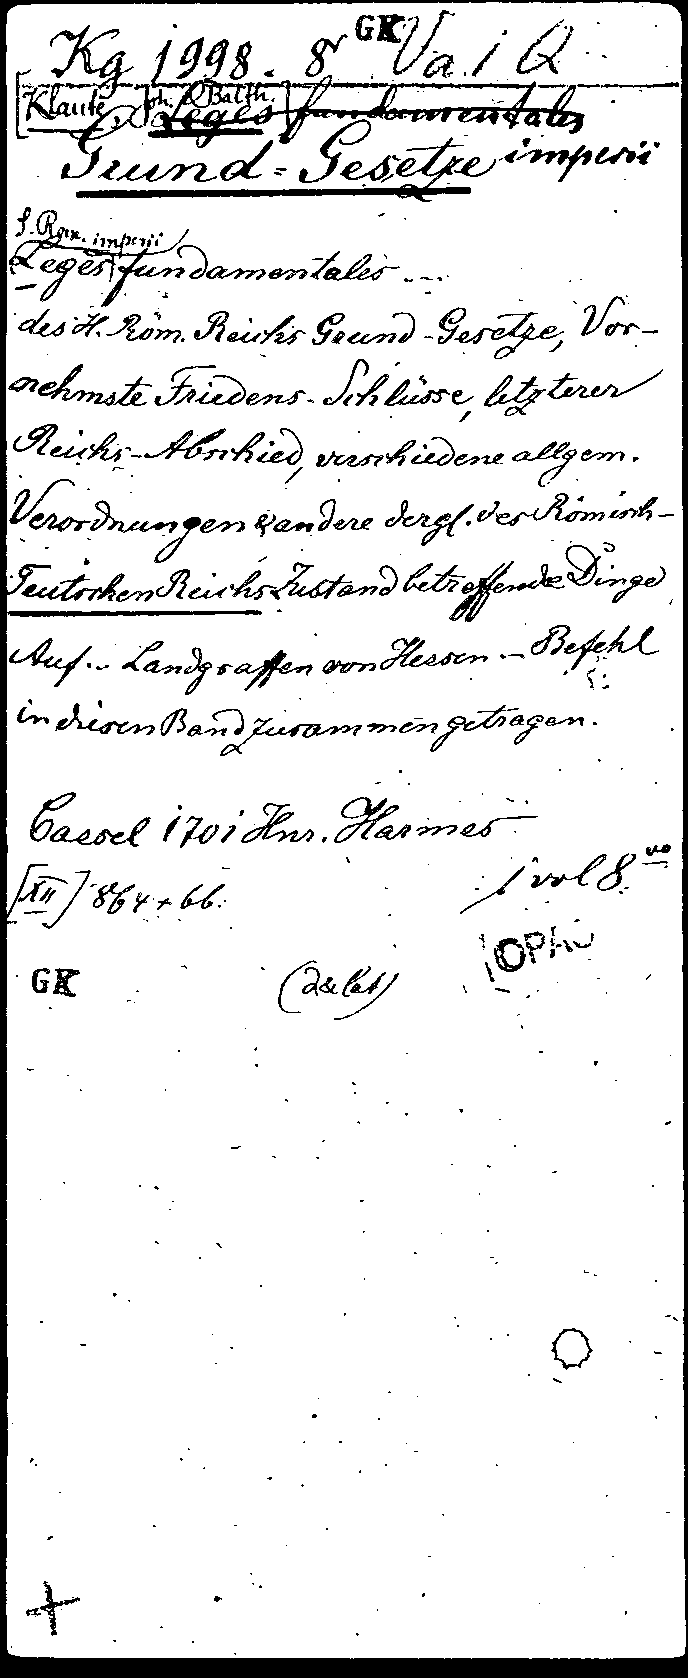 GK
Kg 1998. 8° Va 1 Q
[Klaute, Joh. Balth.]
Leges fundamentales
Grund-Gesetze imperii
S. Rom. imperii
Leges fundamentales ....
des H. Röm. Reichs Grund-Gesetze, Vor-
nehmste Friedens-Schlüsse, letzterer
Reichs-Abschied, verschiedene allgem.
Verordnungen & andere dergl. des Römisch-
Teutschen Reichs Zustand betreffende Dinge
Auf .. Landgraffen von Hessen ... Befehl
in diesen Band zusammengetragen.
Cassel 1701 Hnr. Harmes
[XII] 864 + 66.
1 vol 8.vo
GK
(2&let)